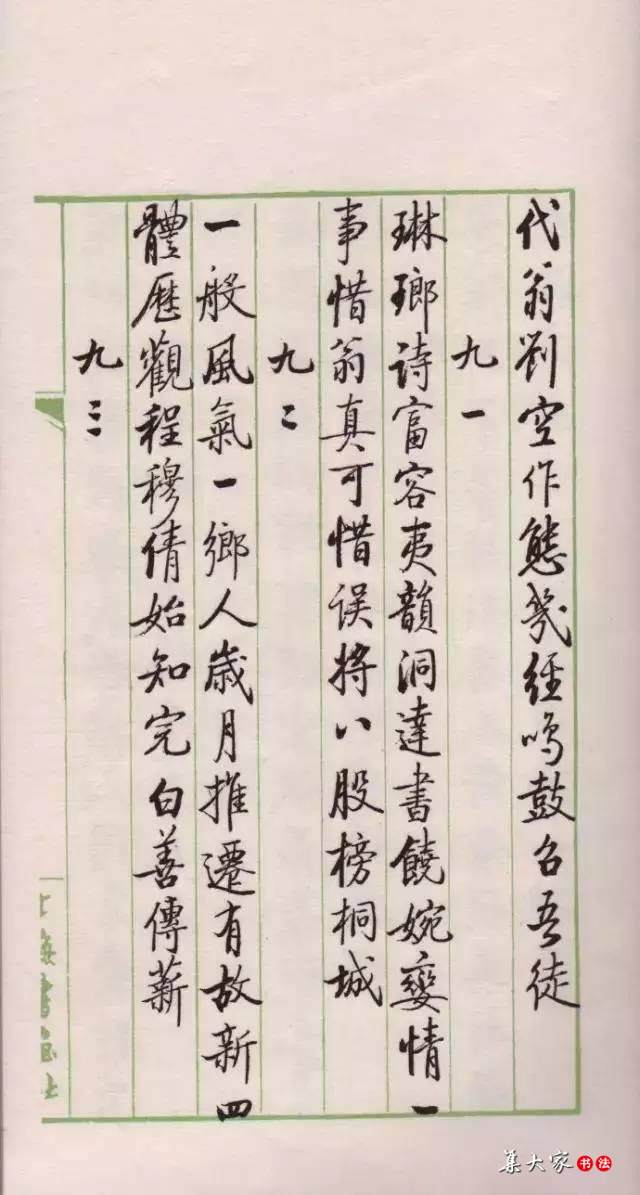 代翁刘空作態几經鸣鼓召吾徒
九一
琳瑯诗富容夷韻洞達書饒婉孌情一
事惜翁真可惜误将八股榜桐城
九二
一般風氣一鄉人歲月推遷有故新四
體歷觀程穆倩始知完白善傳薪
九三
上海書畫社
集大家书法